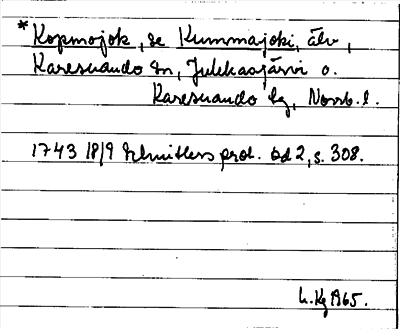 * Kopmojok, se Kummajoki, älv,
Karesuando sn, Jukkasjärvi o.
Karesuando lg, Norrb. l.
1743 18/9 Schnitlers prot. bd 2, s. 308.
L. Kg 1965.